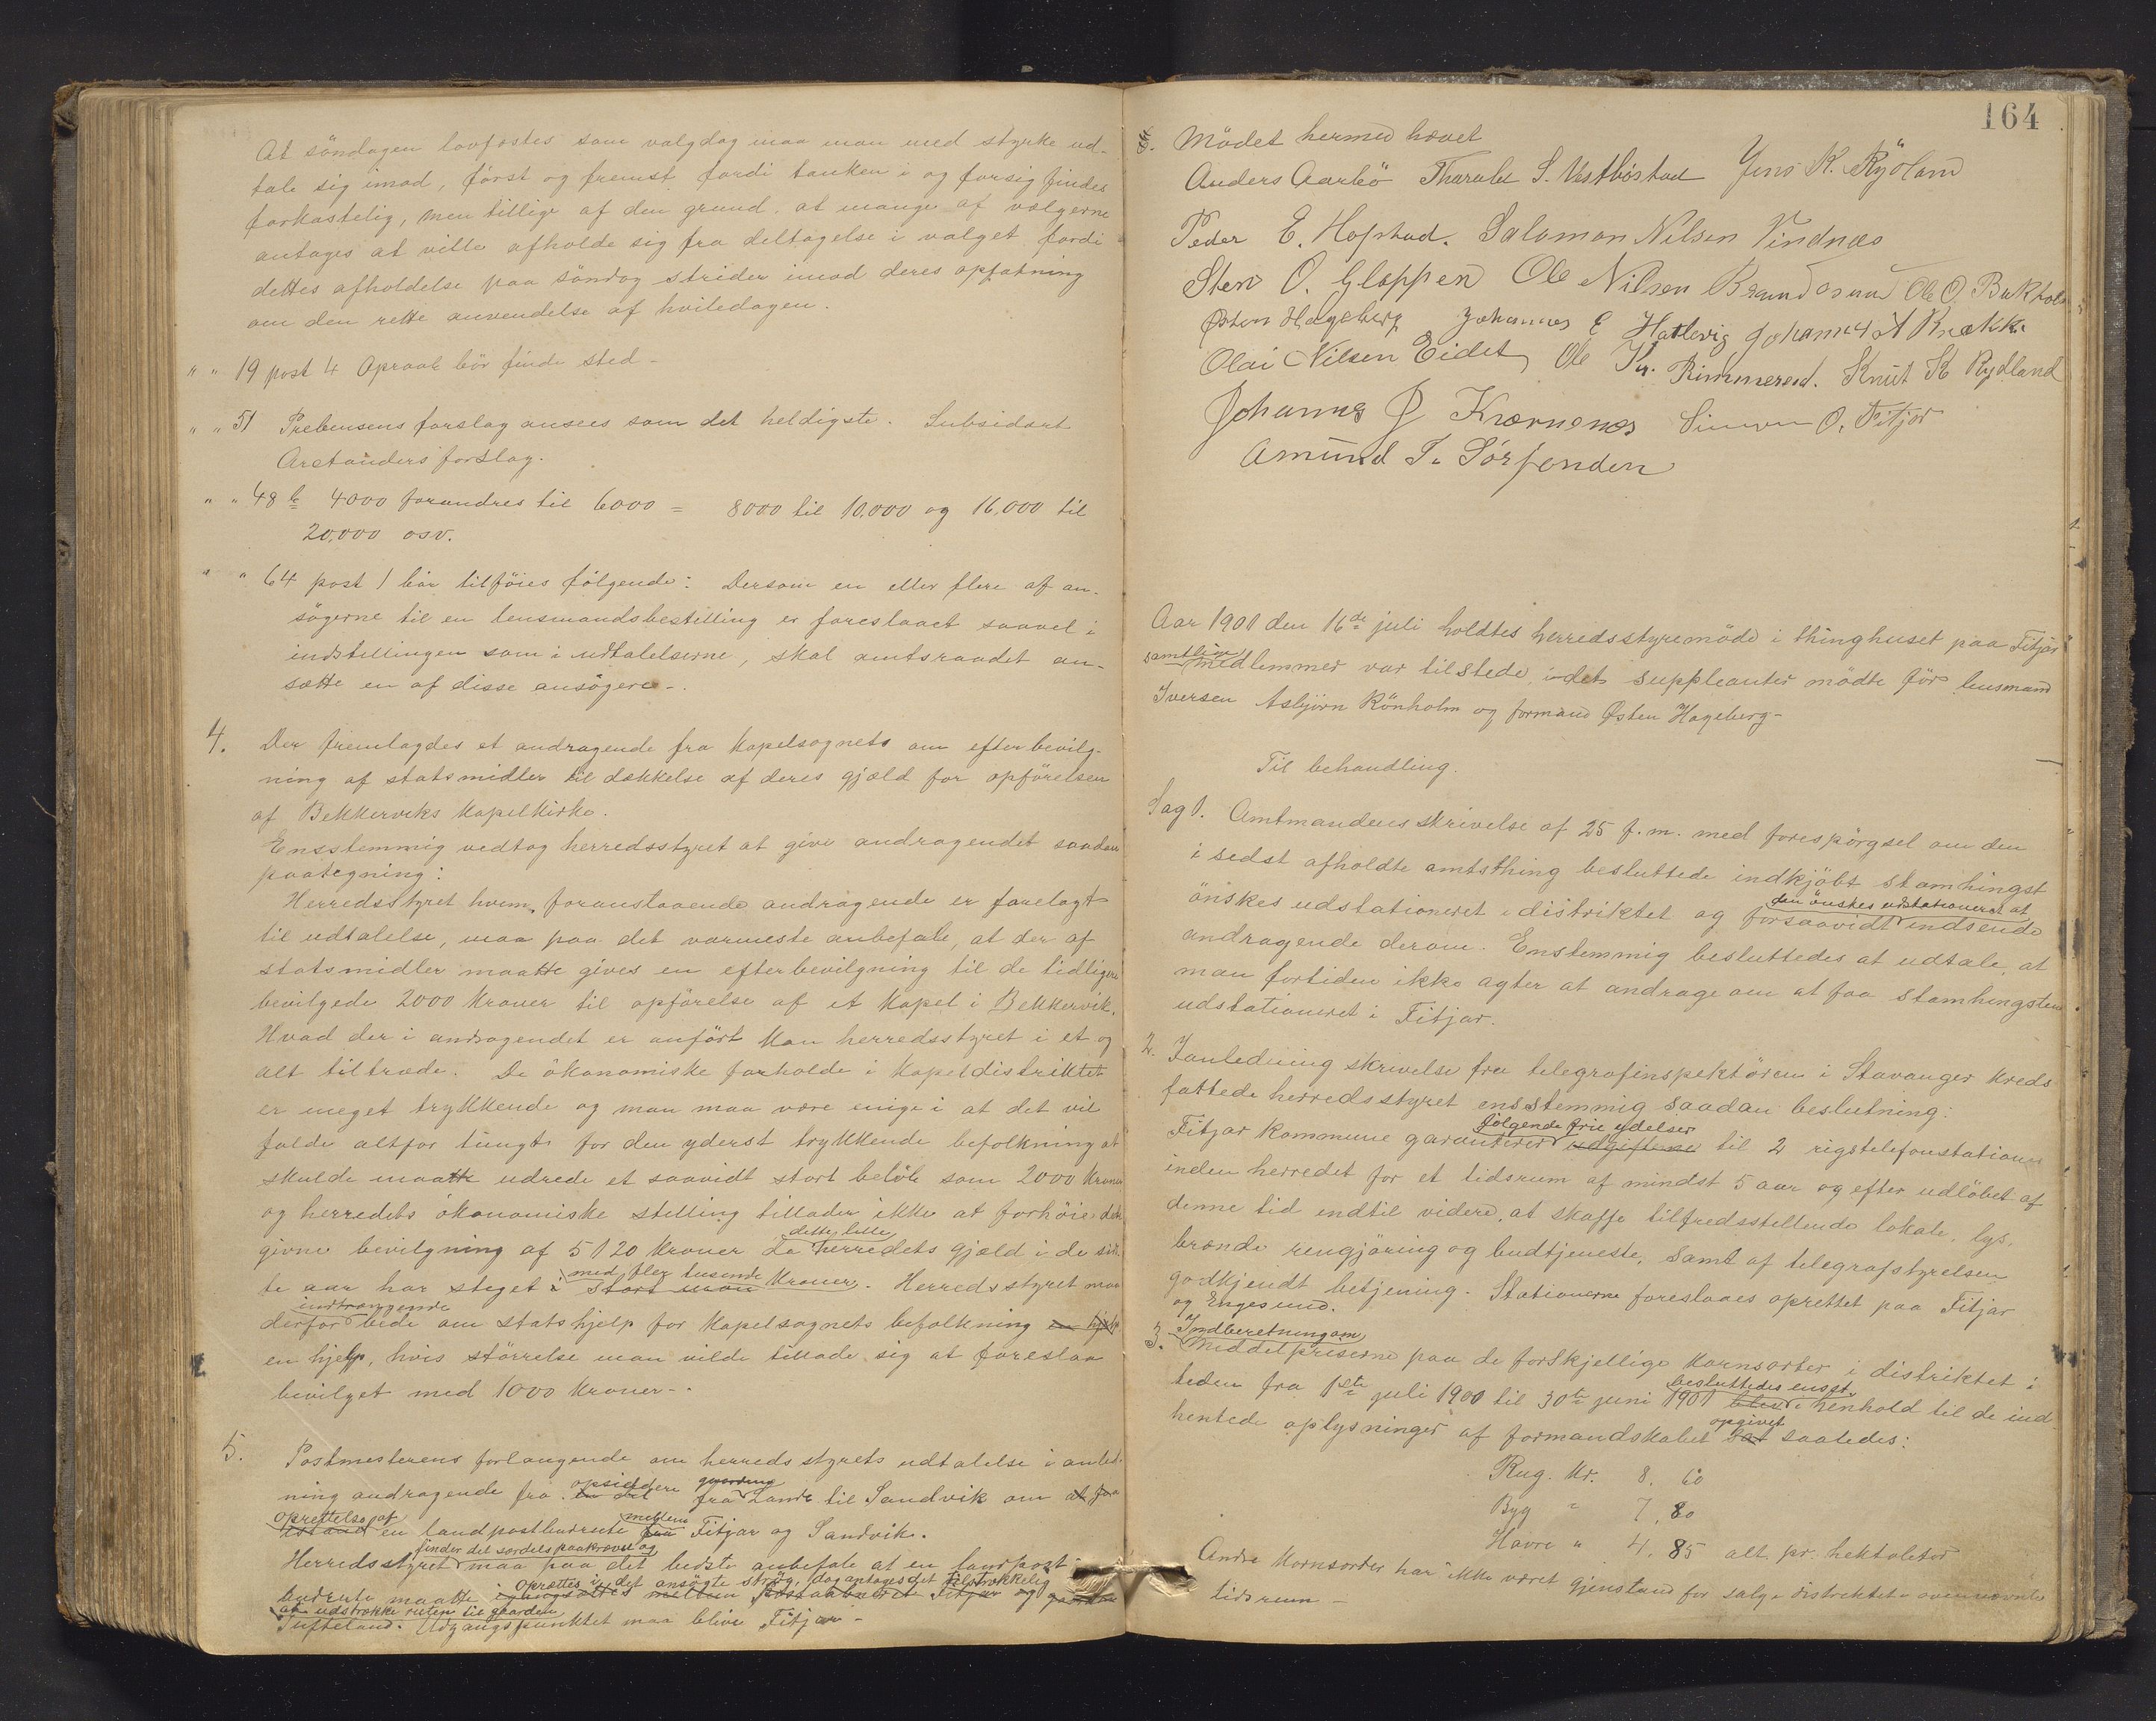 At söndagen lovfæstes som valgdag maa man med styrke ud-
tale sig imod, först og fremst fordi tanken i og forsig findes
forkastelig, men tillige af den grund, at mange af vælgerne
antages at ville afholde sig fra deltagelse i valget fordi
dettes afholdelse paa söndag strider imod deres opfatning
om den rette anvendelse af hviledagen.
" " 19 post 4 Opraab bör finde sted -
" " 51 Prebensens forslag ansees som det heldigste. Subsidært
Arctanders forslag.
" " 48 b 4000 forandres til 6000 = 8000 til 10.000 og 16.000 til
20.000 osv.
" " 64 post 1 bör tilföies fölgende: Dersom en eller flere af an-
sögerne til en lensmandsbestilling er foreslaaet saavel i
indstillingen som i udtalelserne, skal amtsraadet an-
sætte en af disse ansögere -.
4. Der fremlagdes et andragende fra Kapelsognets om efterbevilg-
ning af statsmidler til dækkelse af deres gjæld for opförelsen
af Bekkerviks Kapelkirke.
Ensstemmig vedtog herredsstyret at give andragendet saadan
paategning:
Herredsstyret hvem foranstaaende andragende er forelagt
til udtalelse, maa paa det varmeste anbefale, at der af
statsmidler maatte gives en efterbevilgning til de tidligere
bevilgede 2000 Kroner til opförelse af et Kapel i Bekkervik.
Hvad der i andragendet er anfört Kan herredsstyret i et og
alt tiltræde. De ökonomiske forholde i Kapeldistriktet
er meget trykkende og man maa være enige i at det vil
falde altfor tungt for den yderst trykkende befolkning at
skulde maatte udrede et saavidt stort belöb som 2000 Kroner
og herredets ökonomiske stilling tillader ikke at forhöie den
givne bevilgning af 5120 Kroner da dette lille herredets gjæld i de sids
te aar har steget i stort mon med fler tusende Kroner. Herredsstyret maa
derfor indtrængende bede om statshjelp for Kapelsognets befolkning en hjelp
en hjelp, hvis störrelse man vilde tillade sig at foreslaa
bevilget med 1000 Kroner -.
5. Postmesterens forlangende om herredsstyrets udtalelse i anled-
ning andragende fra en del opsiddere fra gaardene Lande til Sandvik om at faa
istand oprettelse af en landpostbudrute fra mellem Fitjar og Sandvik.
Herredsstyret finder det særdeles paakrævet og maa paa det bedste anbefale at en landpost-
budrute maatte igangsættes oprættes i det ansögte strög, dog antages det tilstrækkelig mellem Postaabneriet Fitjar og gaarden
at udstrække ruten til gaarden
Tufteland. Udgangspunktet maa blive Fitjar -
164
6. Mödet hermed hævet
Anders Aarbö Tharald S. Vestböstad Jens K. Rydland
Peder E. Hopstad. Salamon Nilsen Vindnæs
Sten O. Gloppen Ole Nilsen Brandasund Ole O. Bukholm
Østen Hageberg Johannes E Hatlevig Johannes A Brække
Olai Nilsen Eidet, Ole Kr. Rimmereid. Knut K Rydland
Johannes J Kræmenes Simon O. Fitjar
Amund T. Sörfonden
Aar 1901 den 16de juli holdtes herredsstyremöde i thinghuset paa Fitjar
samtlige medlemmer var tilstede, idet suppleanter mödte för lensmand
Iversen Asbjörn Rönholm og formand Østen Hageberg -
Til behandling.
Sag 1. Amtmandens skrivelse af 25 f.m. med forespörgsel om den
i sedst afholdte amtsthing besluttede indkjöbt stamhingst
önskes udstationeret i distriktet og forsaavidt den önskes udstationeret at indsende
andragende derom. Enstemmig besluttedes at udtale, at
man fortiden ikke agter at andrage om at faa stamhingsten
udstationeret i Fitjar.
2. Ianledning skrivelse fra telegrafinspektören i Stavanger Kreds
fattede herredsstyret ensstemmig saadan beslutning:
Fitjar Kommune garanterer udgifterne fölgende frie ydelser til 2 rigstelefonstationer
inden herredet for et tidsrum af mindst 5 aar og efter udlöbet af
denne tid indtil videre, at skaffe tilfredsstillende lokale, lys,
brænde rengjöring og budtjeneste, samt af telegrafstyrelsen
godkjendt betjening. Stationerne foreslaaes oprettet paa Fitjar
og Engesund.
3. Indberetning om Middelpriserne paa de forskjellige Kornsorter i distriktet i
tiden fra 1ste juli 1900 til 30te juni 1901 blev besluttedes ensst. i henhold til de ind
hentede oplysninger af formandskabet sat opgivet saaledes:
Rug. Kr. 8. 60
Byg " 7. 80
Havre " 4. 85 alt pr. hektoliter
Andre Kornsorter har ikke været gjenstand for salg i distriktet i ovennævnte
tidsrum -